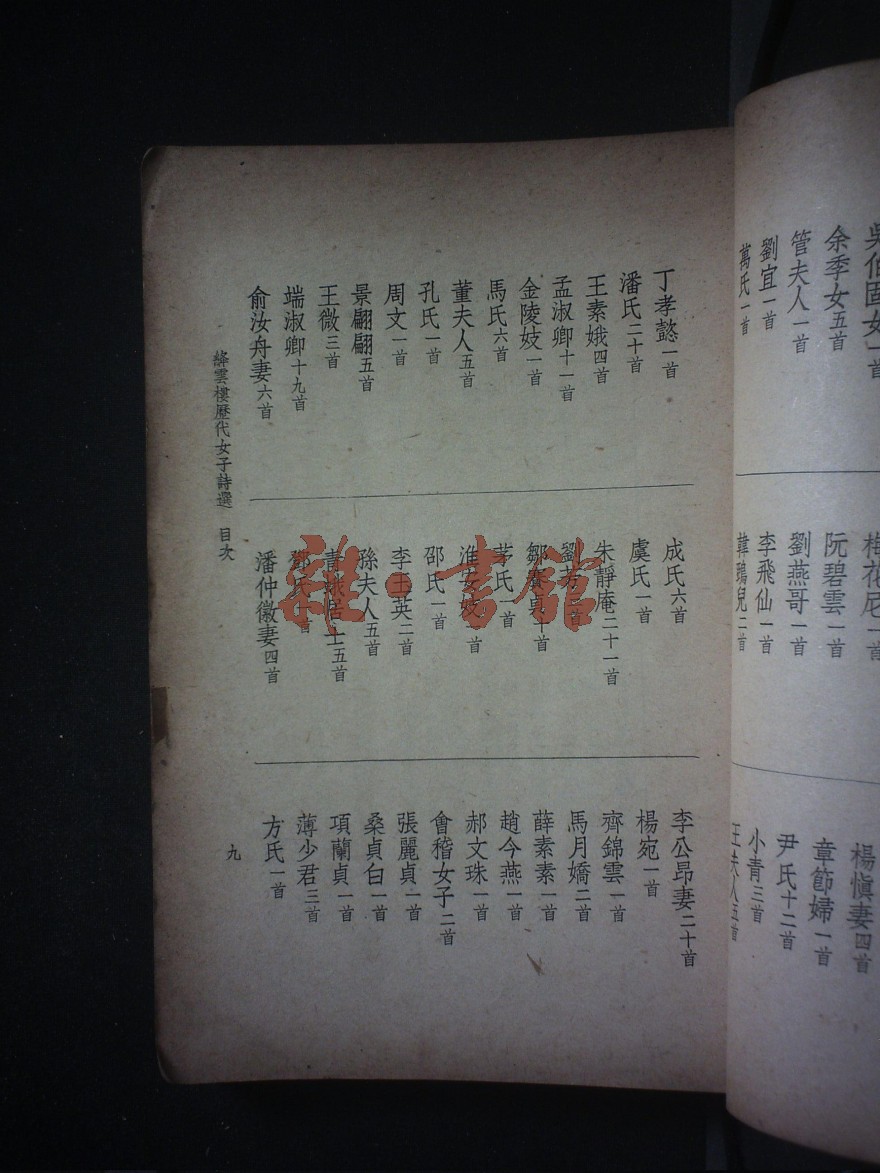 吳伯固女一首
余季女五首
管夫人一首
劉宜一首
萬氏一首
梅花尼一首
阮碧雲一首
劉燕哥一首
李飛仙一首
韓鵎兒二首
楊慎妻四首
章節婦一首
尹氏十二首
小青三首
王夫人五首
丁孝懿一首
潘氏二十首
王素娥四首
孟淑卿十一首
金陵妓一首
馬氏六首
董夫人五首
孔氏一首
周文一首
景翩翩五首
王微三首
端淑卿十九首
俞汝舟妻六首
成氏六首
虞氏一首
朱靜庵二十一首
劉 首
鄒賽貞十首
茅氏一首
淮安妓 首
邵氏一首
李玉英二首
孫夫人五首
青娥居士五首
鄧氏 首
潘仲徽妻四首
李公昂妻二十首
楊宛一首
齊錦雲一首
馬月嬌二首
薛素素一首
趙今燕一首
郝文珠一首
會稽女子二首
張麗貞一首
桑貞白一首
項蘭貞一首
薄少君三首
方氏一首
絳雲樓歷代女子詩選 目次
九
雜·書館